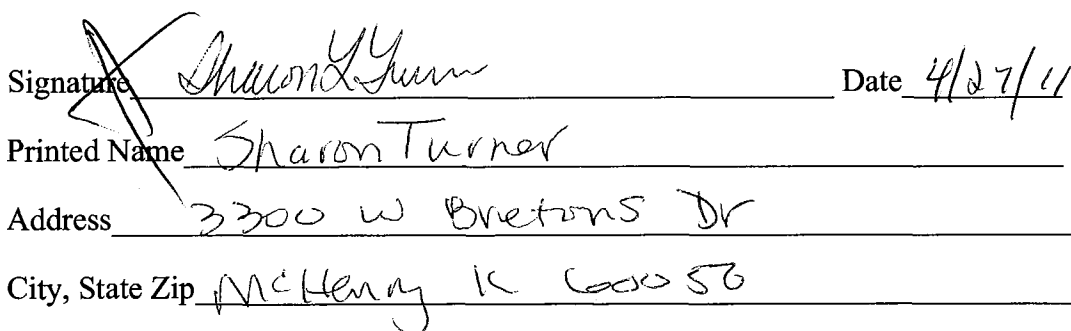 Signature Sharon L Turner Date 4/27/11
Printed Name Sharon Turner
Address 3300 W Bretons Dr
City, State Zip McHenry IL 60050